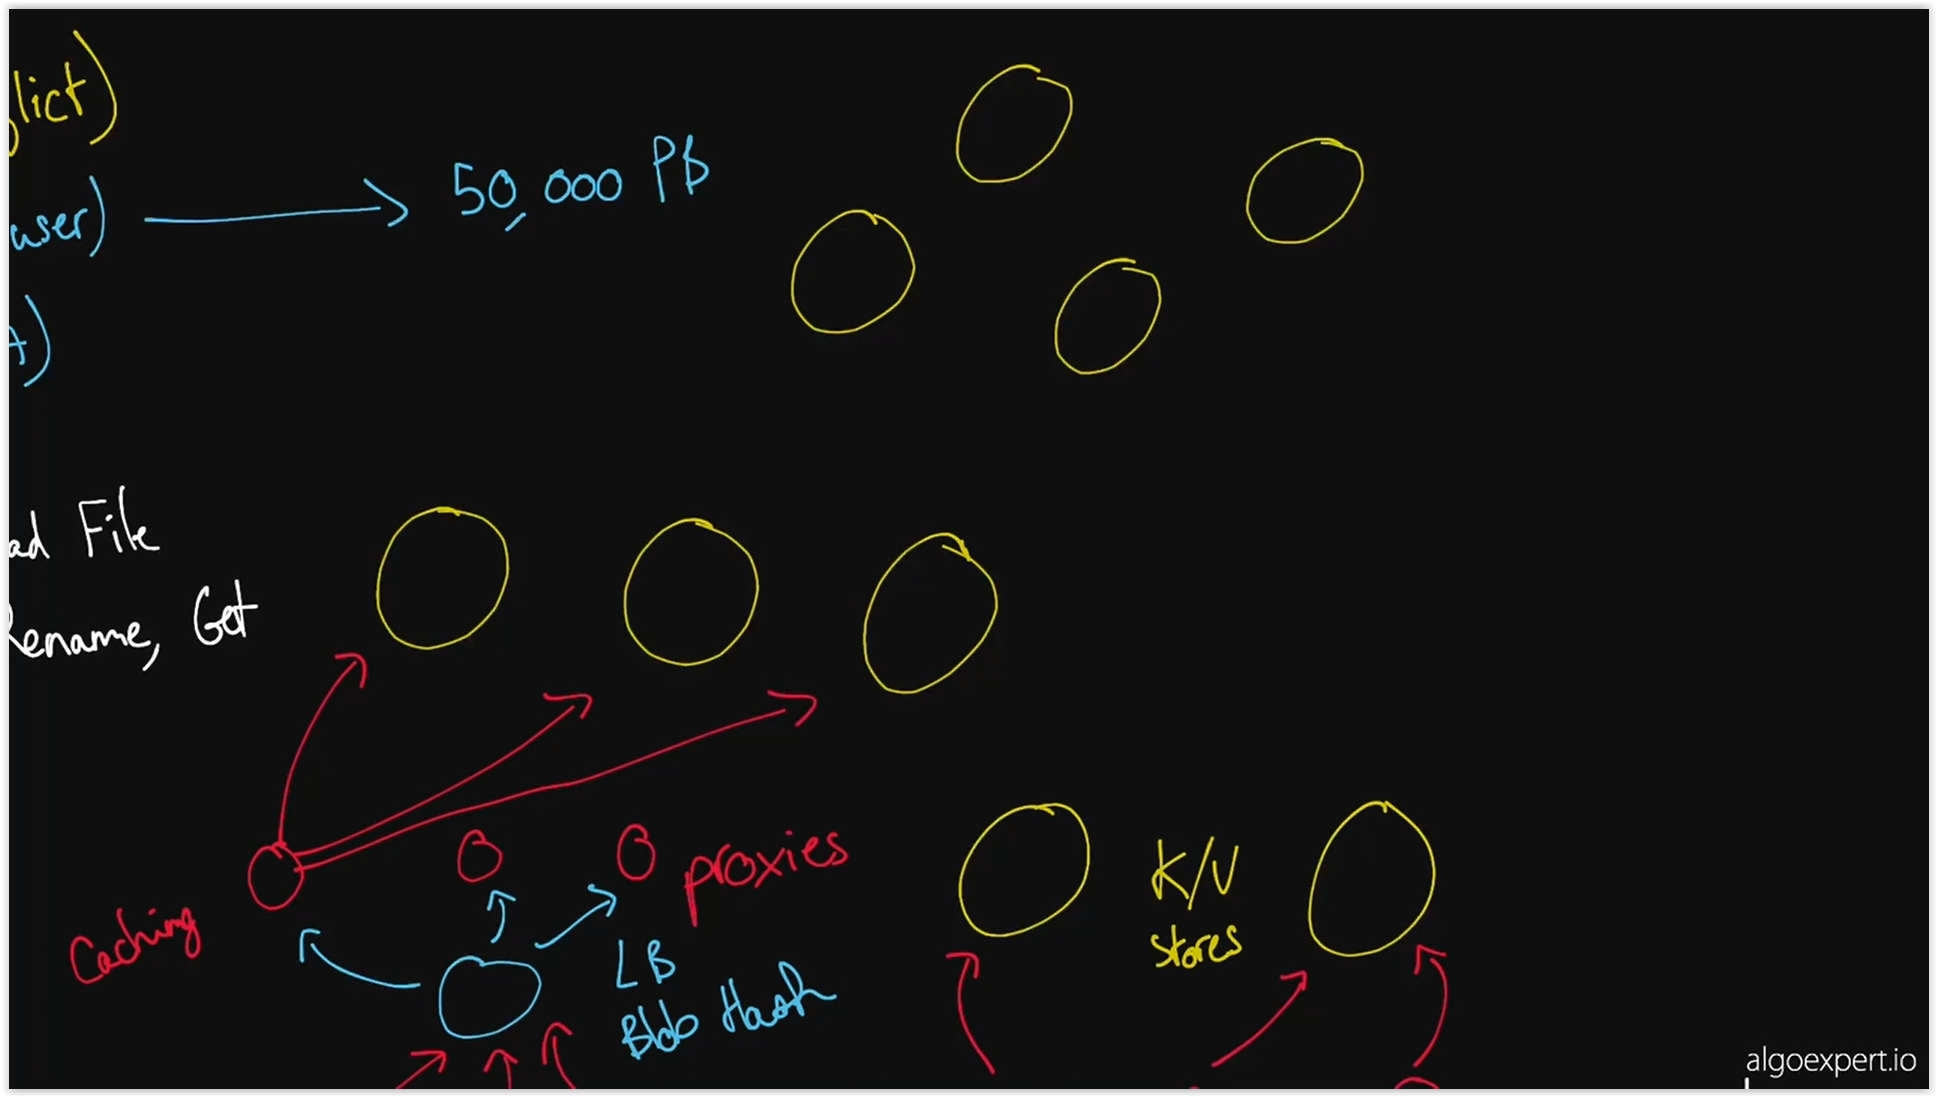 lict)
user) → 50,000 PB
)
ad File
Rename, Get
Caching
proxies
LB
Blob Hash
K/V
stores
algoexpert.io